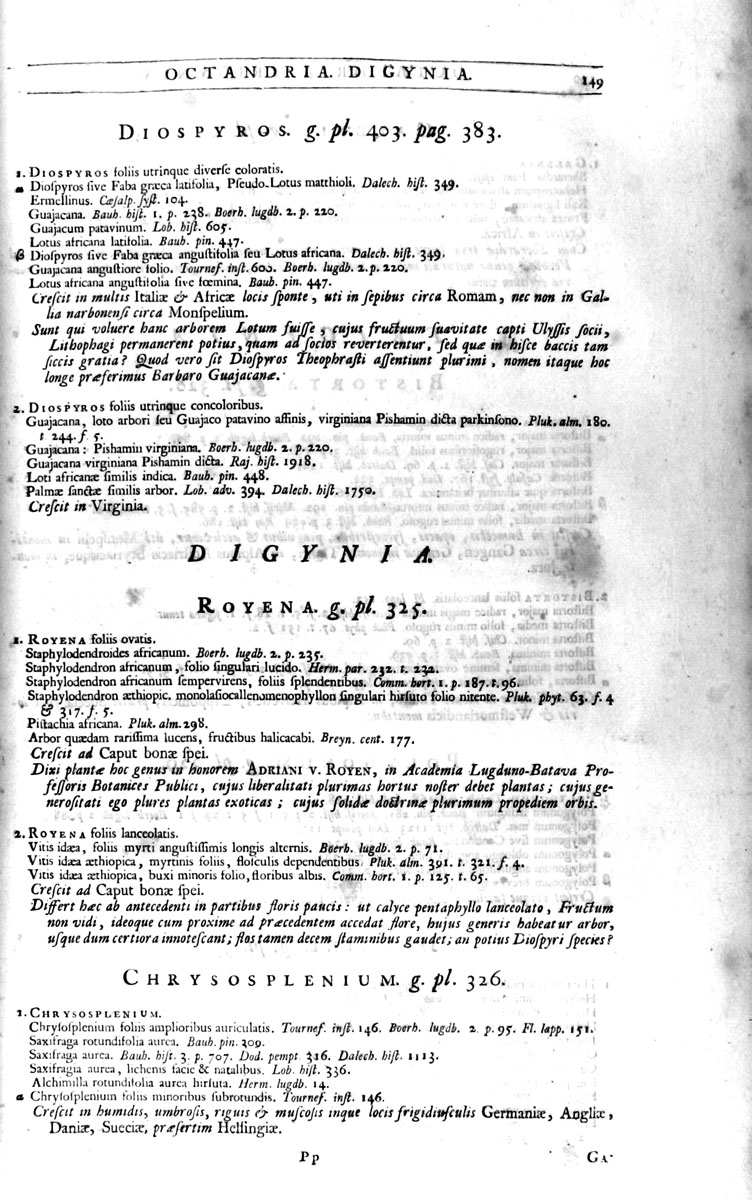 OCTANDRIA. DIGYNIA. 149
DIOSPYROS. g. pl. 403. pag. 383.
1. DIOSPYROS foliis utrinque diverse coloratis.
α Diospyros sive Faba græca latifolia, Pseudo-Lotus matthioli. Dalech. hist. 349.
Ermellinus. Cæsalp. syst. 104.
Guajacana. Bauh. hist. 1. p. 238. Boerh. lugdb. 2. p. 220.
Guajacum patavinum. Lob. hist. 605.
Lotus africana latifolia. Bauh. pin. 447.
β Diospyros sive Faba græca angustifolia seu Lotus africana. Dalech. hist. 349.
Guajacana angustiore folio. Tournef. inst. 600. Boerh. lugdb. 2. p. 220.
Lotus africana angustifolia sive fœmina. Bauh. pin. 447.
Crescit in multis Italiæ & Africæ locis sponte, uti in sepibus circa Romam, nec non in Gal-
lia narbonensi circa Monspelium.
Sunt qui voluere hanc arborem Lotum fuisse, cujus fructuum suavitate capti Ulyssis socii,
Lithophagi permanerent potius, quam ad socios reverterentur, sed quæ in hisce baccis tam
siccis gratia? Quod vero sit Diospyros Theophrasti assentiunt plurimi, nomen itaque hoc
longe præferimus Barbaro Guajacanæ.
2. DIOSPYROS foliis utrinque concoloribus.
Guajacana, loto arbori seu Guajaco patavino affinis, virginiana Pishamin dicta parkinsono. Pluk. alm. 180.
t. 244. f. 5.
Guajacana; Pishamin virginiana. Boerh. lugdb. 2. p. 220.
Guajacana virginiana Pishamin dicta. Raj. hist. 1918.
Loti africanæ similis indica. Bauh. pin. 448.
Palmæ sanctæ similis arbor. Lob. adv. 394. Dalech. hist. 1750.
Crescit in Virginia.
DIGYNIA.
ROYENA. g. pl. 325.
1. ROYENA foliis ovatis.
Staphylodendroides africanum. Boerh. lugdb. 2. p. 235.
Staphylodendron africanum, folio singulari lucido. Herm. par. 232. t. 232.
Staphylodendron africanum sempervirens, foliis splendentibus. Comm. hort. 1. p. 187. t. 96.
Staphylodendron æthiopic. monolasiocallenomenophyllon singulari hirsuto folio nitente. Pluk. phyt. 63. f. 4
& 317. f. 5.
Pistachia africana. Pluk. alm. 298.
Arbor quædam rarissima lucens, fructibus halicacabi. Breyn. cent. 177.
Crescit ad Caput bonæ spei.
Dixi plantæ hoc genus in honorem ADRIANI V. ROYEN, in Academia Lugduno-Batava Pro-
fessoris Botanices Publici, cujus liberalitati plurimas hortus noster debet plantas; cujus ge-
nerositati ego plures plantas exoticas; cujus solidæ doctrinæ plurimum propediem orbis.
2. ROYENA foliis lanceolatis.
Vitis idæa, foliis myrti angustissimis longis alternis. Boerh. lugdb. 2. p. 71.
Vitis idæa æthiopica, myrtinis foliis, flosculis dependentibus. Pluk. alm. 391. t. 321. f. 4.
Vitis idæa æthiopica, buxi minoris folio, floribus albis. Comm. hort. 1. p. 125. t. 65.
Crescit ad Caput bonæ spei.
Differt hæc ab antecedenti in partibus floris paucis: ut calyce pentaphyllo lanceolato, Fructum
non vidi, ideoque cum proxime ad præcedentem accedat flore, hujus generis habeatur arbor,
usque dum certiora innotescant; flos tamen decem staminibus gaudet; an potius Diospyri species?
CHRYSOSPLENIUM. g. pl. 326.
1. CHRYSOSPLENIUM.
Chrysosplenium foliis amplioribus auriculatis. Tournef. inst. 146. Boerh. lugdb. 2. p. 95. Fl. lapp. 151.
Saxifraga rotundifolia aurea. Bauh. pin. 309.
Saxifraga aurea. Bauh. hist. 3. p. 707. Dod. pempt. 316. Dalech. hist. 1113.
Saxifragia aurea, lichenis facie & natalibus. Lob. hist. 336.
Alchimilla rotundifolia aurea hirsuta. Herm. lugdb. 14.
α Chrysosplenium foliis minoribus subrotundis. Tournef. inst. 146.
Crescit in humidis, umbrosis, riguis & muscosis inque locis frigidiusculis Germaniæ, Angliæ,
Daniæ, Sueciæ, præsertim Helsingiæ.
Pp GA-